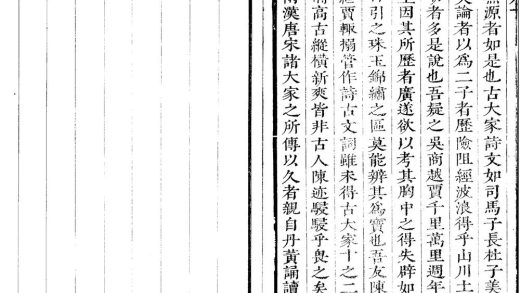 無源者如是也古大家詩文如司馬子長杜子美
論者以為二子者歷險阻經波浪得乎山川土
者多是說也吾疑之吳商越賈千里萬里週年
因其所歷者廣遂欲以考其胸中之得失辟如
引之珠玉錦繡之區莫能辨其為寶也吾友陳
賈輙搦管作詩古文詞雖未得古大家十之二
高古縱橫新爽皆非古人陳迹駸駸乎畏之矣
漢唐宋諸大家之所傳以久者親自丹黃誦讀